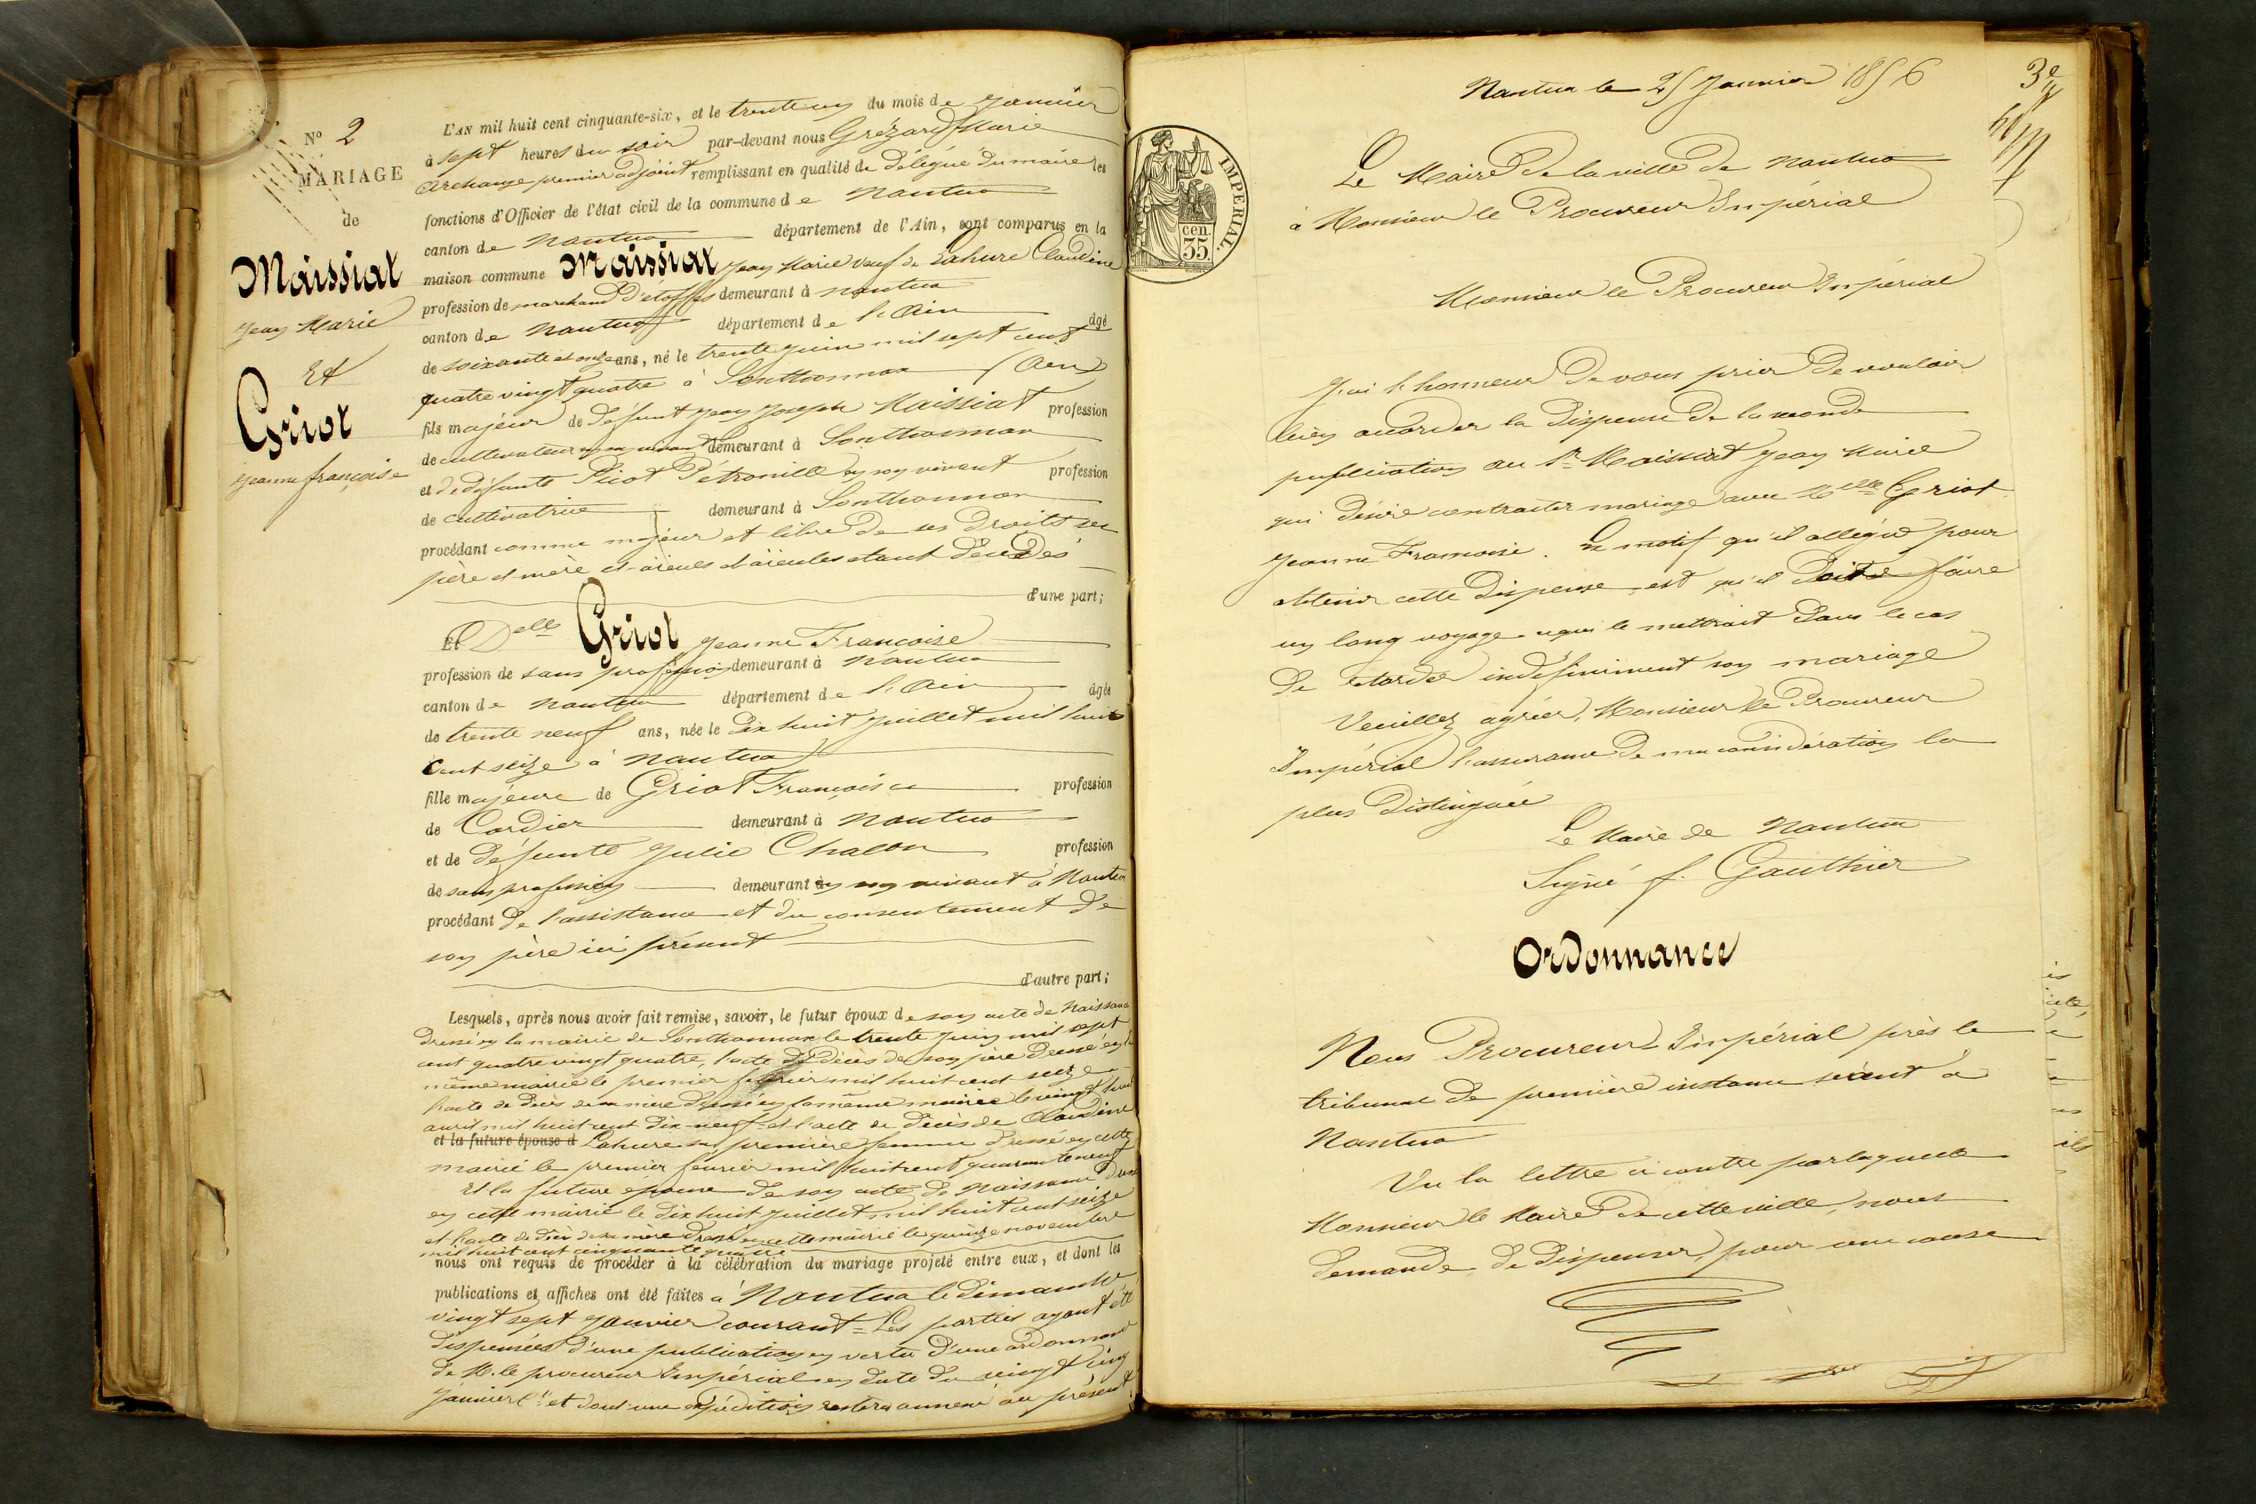 N° 2
MARIAGE
de
Maissiat
Jean Marie
Et
Griot
Jeanne françoise
L'AN mil huit cent cinquante-six, et le trente un du mois de Janvier
à sept heures du soir par-devant nous Grézard Marie
Archange premier adjoint remplissant en qualité de Délégué du maire les
fonctions d'Officier de l'état civil de la commune de Nantua
canton de Nantua département de l'Ain, sont comparus en la
maison commune Maissiat Jean Marie veuf de Lahure Claudine
profession de marchand d'étoffes demeurant à Nantua
canton de Nantua département de l'Ain âgé
de soixante et onze ans, né le trente Juin mil sept cent
quatre vingt quatre à Sonthonnax (Ain)
fils majeur de Défunt Jean Joseph Maissiat profession
de cultivateur en son vivant demeurant à Sonthonnax
et de défunte Picot Pétronille en son vivant profession
de cultivatrice demeurant à Sonthonnax
procédant comme majeur et libre de ses droits ses
père et mère et aïeuls et aïeules étant Décédés
d'une part;
Et Delle Griot Jeanne Françoise
profession de sans profession demeurant à Nantua
canton de Nantua département de l'Ain âgée
de trente neuf ans, née le Dix huit Juillet mil huit
Cent seize à Nantua
fille majeure de Griot François profession
de Cordier demeurant à Nantua
et de défunte Julie Chalon profession
de sans profession demeurant en son vivant à Nantua
procédant De l'assistance et du consentement de
son père ici présent
d'autre part;
Lesquels, après nous avoir fait remise, savoir, le futur époux de son acte de Naissance
Dressé en la mairie de Sonthonnax le trente Juin mil sept
cent quatre vingt quatre, l'acte de Décès de son père Dressé en la
même mairie le premier février mil huit cent seize
l'acte de Décès de sa mère Dressé en la même mairie le vingt huit
avril mil huit cent dix-neuf et l'acte de Décès de Claudine
et la future épouse d Lahure sa première femme dressé en cette
mairie le premier février mil huit cent quarante neuf
Et la future épouse de son acte de Naissance Dressé
en cette mairie le Dix huit Juillet mil huit cent seize
et l'acte de Décès de sa mère Dressé en cette mairie le quinze novembre
mil huit cent cinquante quatre
nous ont requis de procéder à la célébration du mariage projeté entre eux, et dont les
publications et affiches ont été faites à Nantua le Dimanche
vingt sept Janvier courant = Les parties ayant été
Dispensées d'une publication en vertu d'une ordonnance
de M. le procureur Impérial en date du vingt cinq
Janvier et dont une expédition restera annexé au présent
Nantua le 25 Janvier 1856
3e
IMPERIAL.
cen.
35.
Le Maire De la ville De Nantua
à Monsieur le Procureur Impérial
Monsieur le Procureur Impérial
J'ai l'honneur De vous prier De vouloir
bien accorder la Dispense De la seconde
publication au Sr Maissiat Jean Marie
qui désire contracter mariage avec Melle Griot
Jeanne Françoise. Le motif qu'il allégue pour
obtenir cette Dispense est qu'il Doit faire
un long voyage ce qui le mettrait Dans le cas
De retarder indéfiniment son mariage
Veuillez agréer, Monsieur le Procureur
Impérial l'assurance De ma considération la
plus Distinguée
Le Maire de Nantua
Signé f. Gauthier
Ordonnance
Nous Procureur Impérial près le
tribunal De première instance séant à
Nantua
Vu la lettre ci contre par laquelle
Monsieur le Maire De cette ville, nous
demande de dispenser, pour une cause